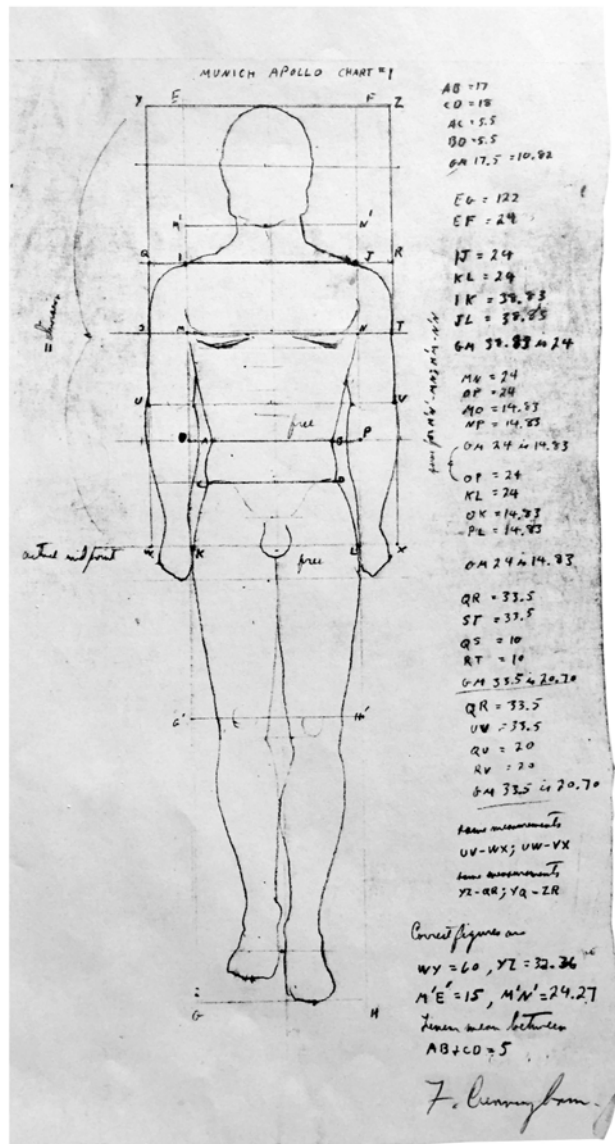 MUNICH APOLLO CHART #1
Y E F Z
M' N'
Q I J R
S M N T
U V
free
O A B P
C D
actual midpoint
W K L X
free
G' H'
G H
AB = 17
CD = 18
AC = 5.5
BD = 5.5
GM 17.5 = 10.82
EG = 122
EF = 24
IJ = 24
KL = 24
IK = 38.83
JL = 38.83
GM 38.83 is 24
MN = 24
OP = 24
MO = 14.83
NP = 14.83
GM 24 is 14.83
OP = 24
KL = 24
OK = 14.83
PL = 14.83
GM 24 is 14.83
QR = 33.5
ST = 33.5
QS = 10
RT = 10
GM 33.5 is 20.70
QR = 33.5
UV = 33.5
QU = 20
RV = 20
GM 33.5 is 20.70
same measurements
UV-WX; UW-VX
same measurements
YZ-QR; YQ-ZR
Correct figures are
WY = 60, YZ = 32.36
M'E' = 15, M'N' = 24.27
mean between
AB+CD = 5
F. Cunningham